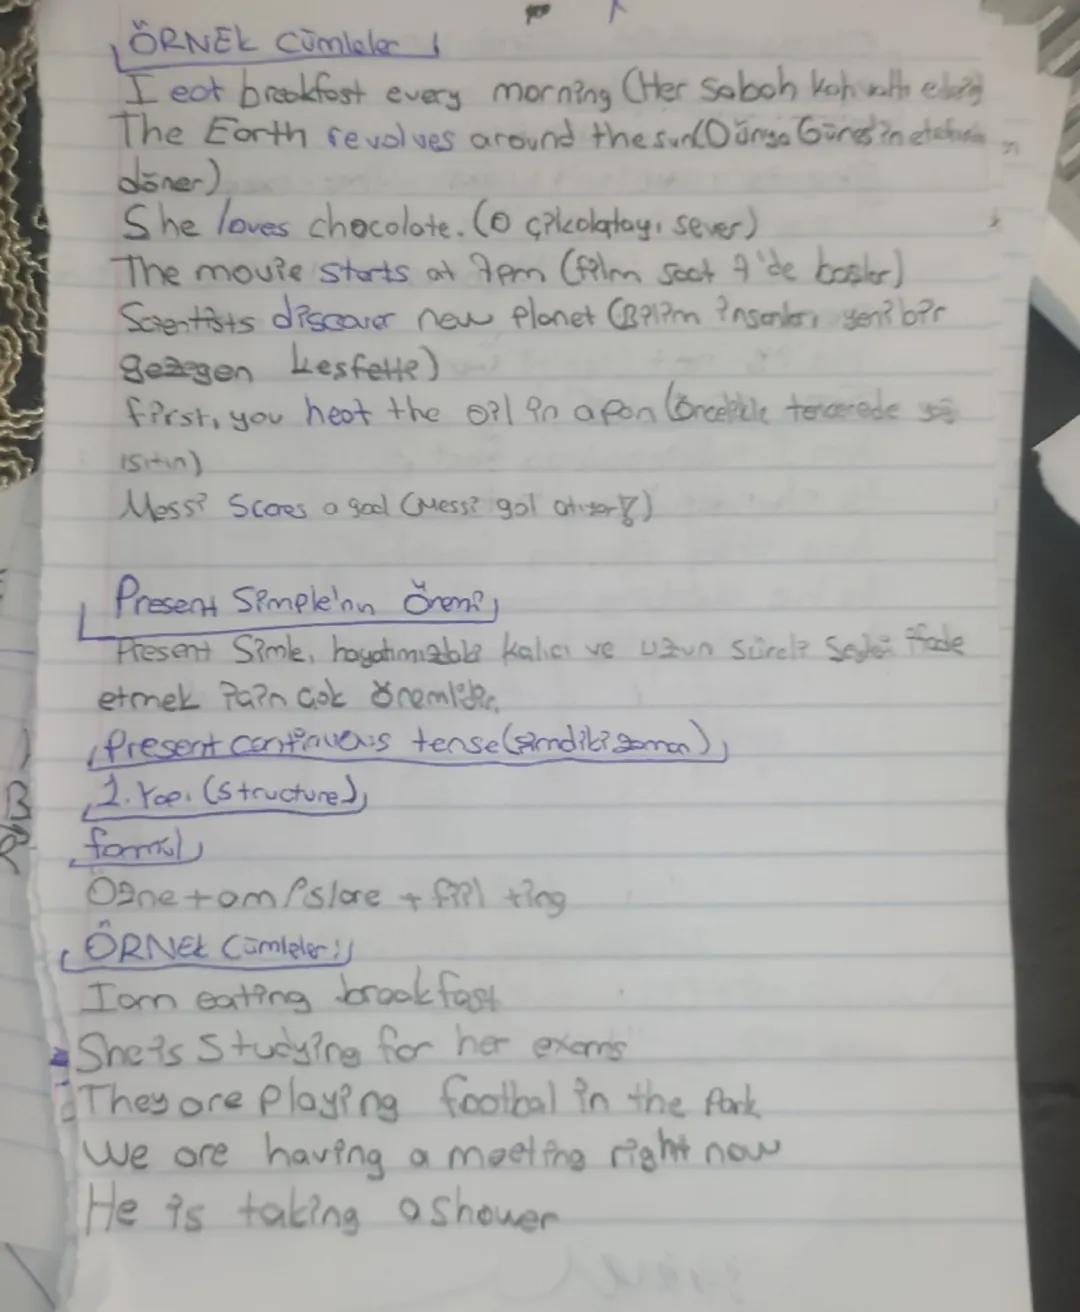 ÖRNEK Cümleler
I eat breakfast every morning (Her sabah kahvaltı ederiz
The Earth revolves around the sun(Dünya Güneş'in etrafında
döner)
She loves chocolate. (O çikolatayı sever)
The movie starts at 7pm (film saat 7'de başlar)
Scientists discover new planet (Bilim insanları yeni bir
gezegen keşfetti)
first, you heat the oil in a pan (öncelikle tencerede
ısıtın)
Messi Scores a goal (Messi gol atıyor)
Present Simple'nın Önemi
Present Simle, hayatımızdaki kalıcı ve uzun süreli şeyleri ifade
etmek için çok önemlidir.
Present continuous tense (şimdiki zaman)
1. Yapı (Structure)
formül
Özne + am/is/are + fiil + ing
ÖRNEK Cümleler:
I am eating breakfast
She is Studying for her exams
They are Playing footbal in the Park
We are having a meeting right now
He is taking a shower